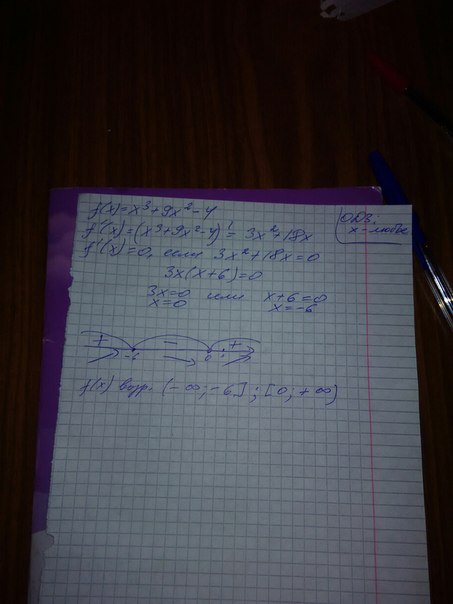 f(x)=x³+9x²-4
f'(x)=(x³+9x²-4)'= 3x²+18x
f'(x)=0, если 3x²+18x=0
3x(x+6)=0
3x=0 или x+6=0
x=0 x=-6
ОДЗ:
x-любое
+ - +
-6 0
f(x) возр. (-∞;-6]; [0,+∞)